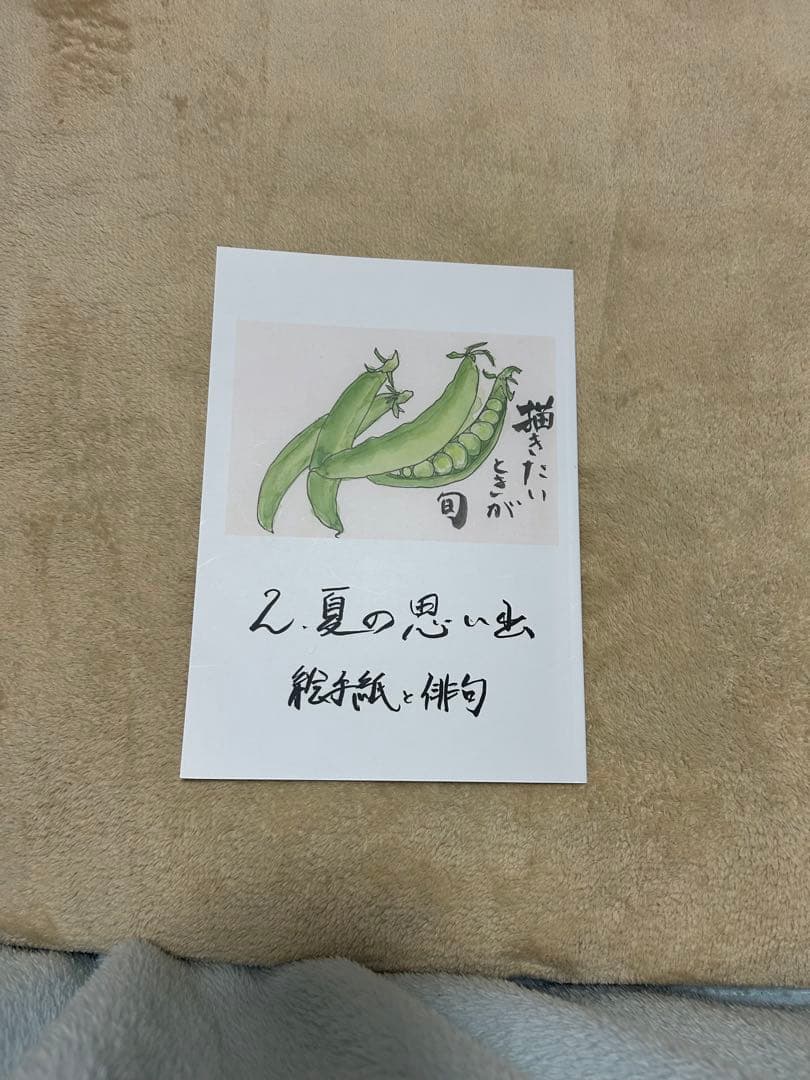 描きたい
ときが
旬
2.夏の思い出
絵手紙と俳句